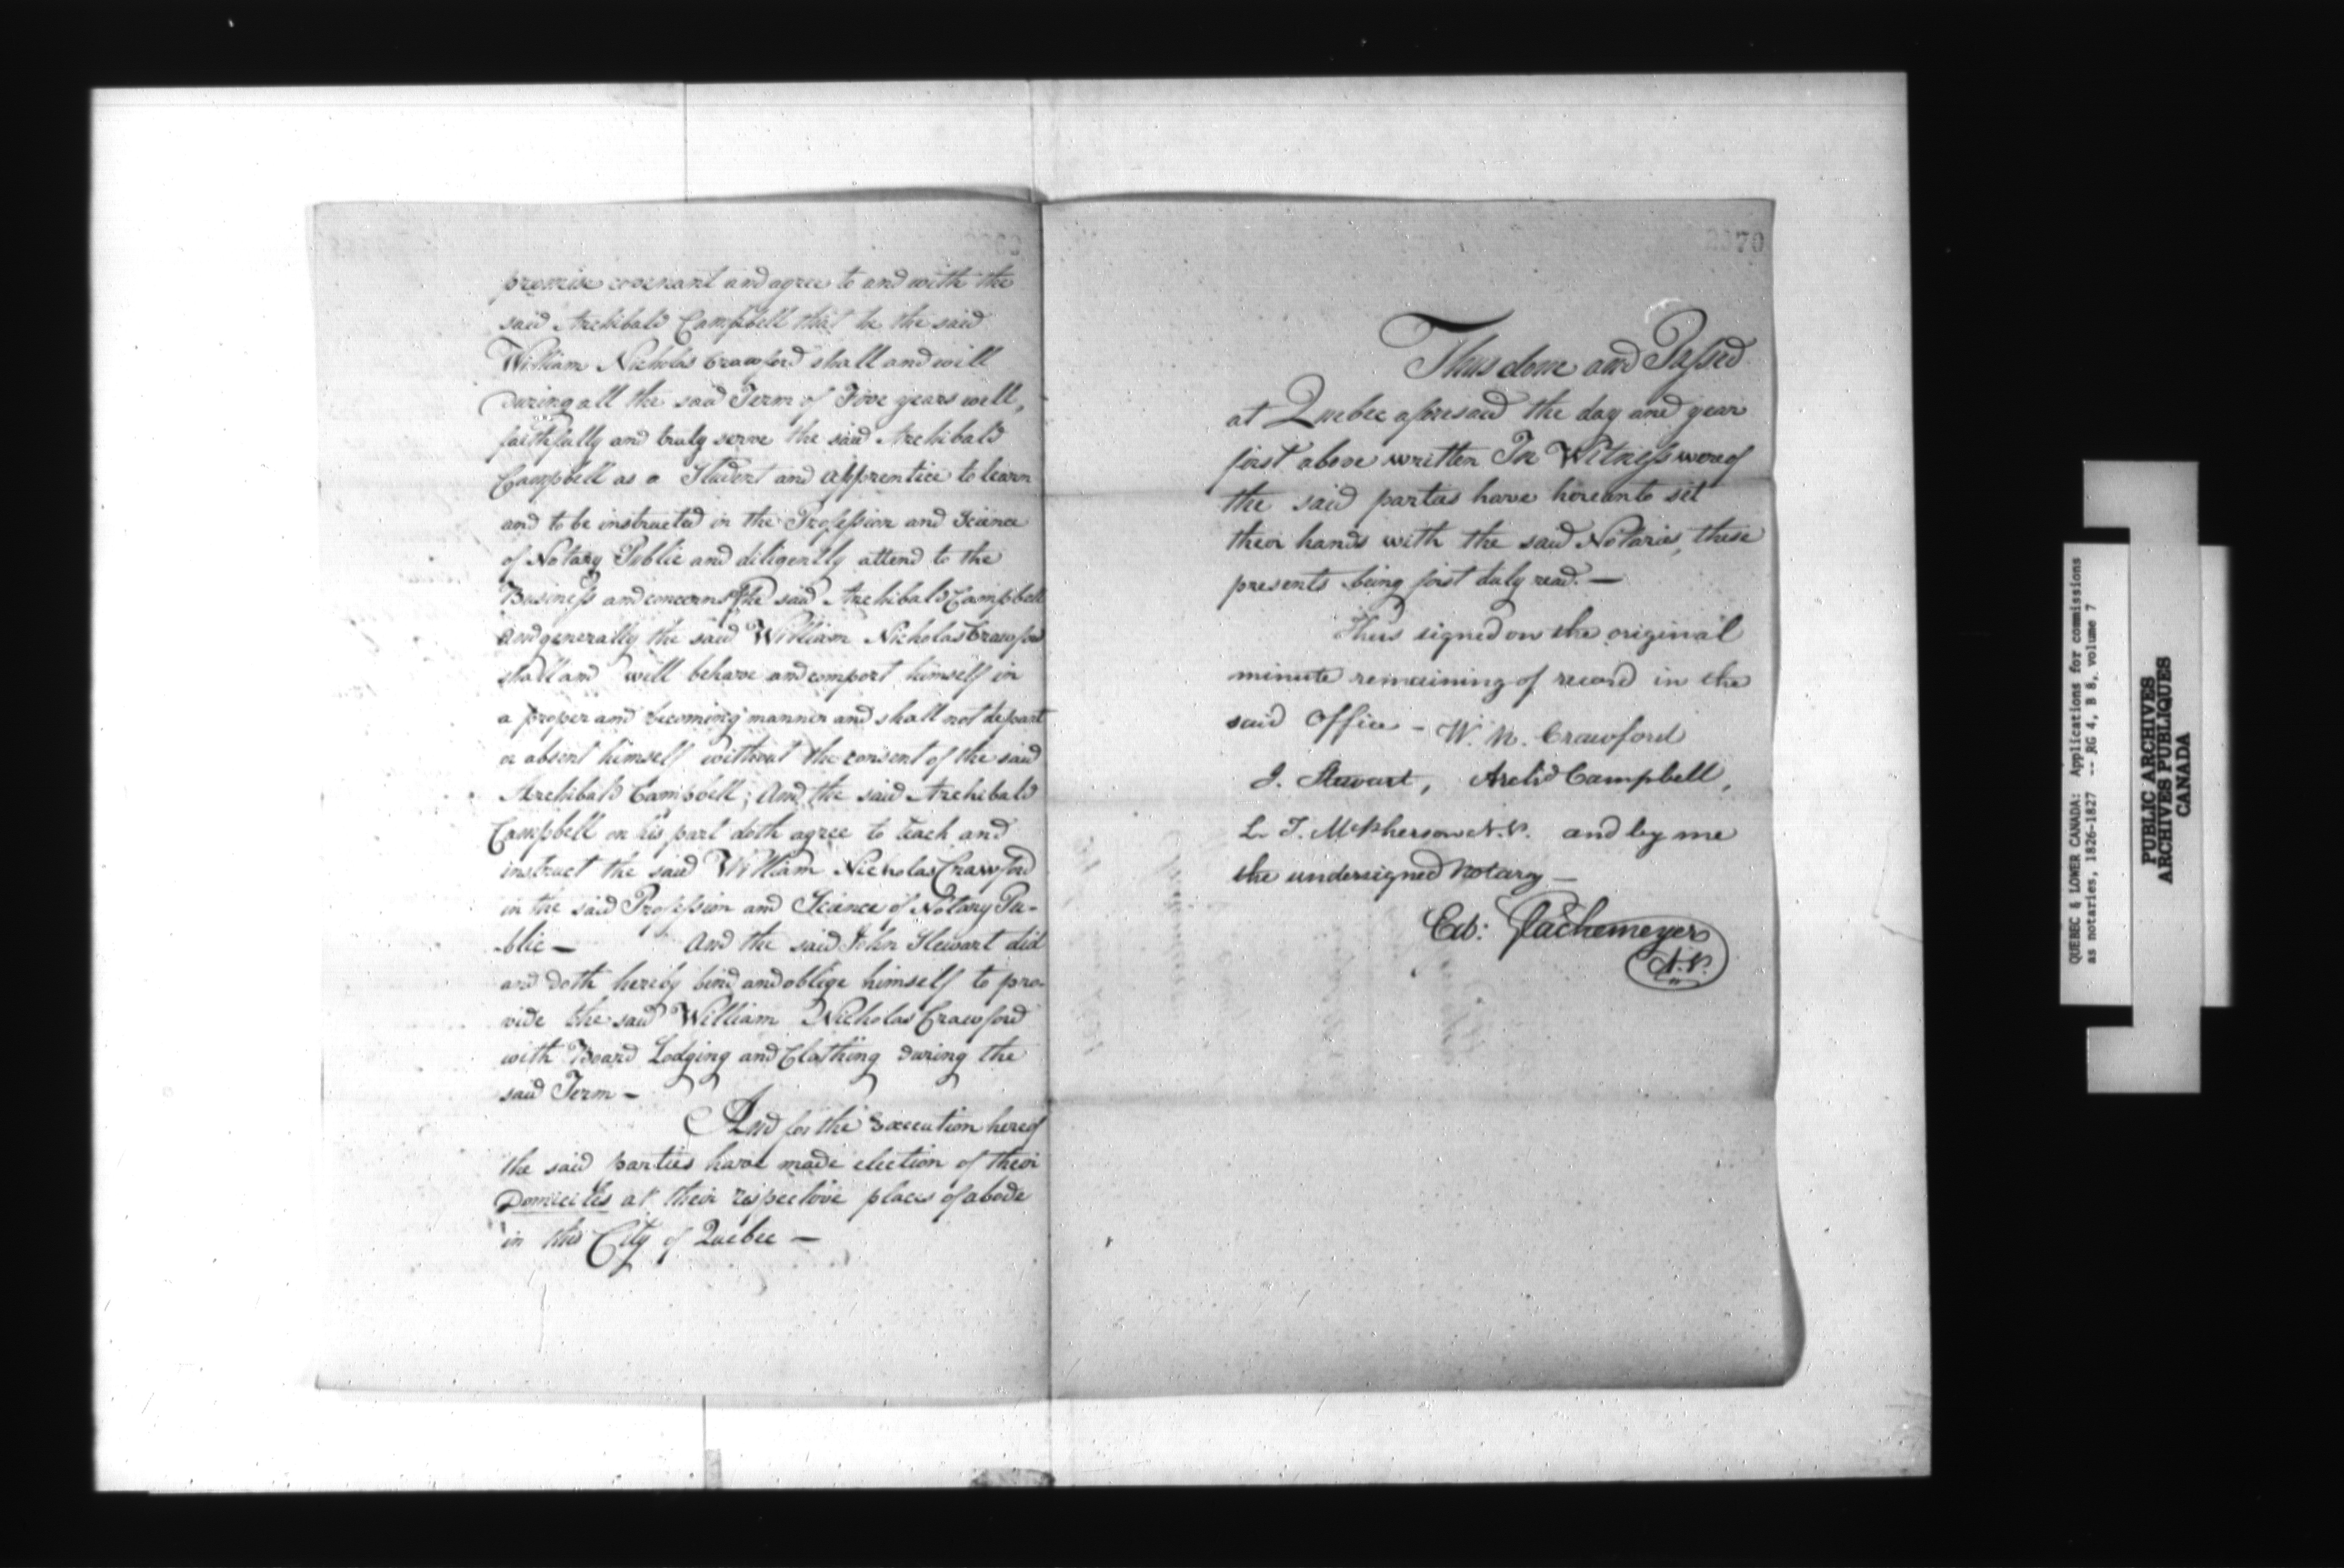 promise covenant and agree to and with the
said Archibald Campbell that he the said
William Nicholas Crawford shall and will
during all the said Term of Five years well,
faithfully and truly serve the said Archibald
Campbell as a Student and apprentice to learn
and to be instructed in the Profession and Science
of Notary Public and diligently attend to the
Business and concerns of the said Archibald Campbell
and generally the said William Nicholas Crawford
shall and will behave and comport himself in
a proper and becoming manner and shall not depart
or absent himself without the consent of the said
Archibald Campbell; And the said Archibald
Campbell on his part doth agree to teach and
instruct the said William Nicholas Crawford
in the said Profession and Science of Notary Pu-
blic — And the said John Stewart did
and doth hereby bind and oblige himself to pro-
vide the said William Nicholas Crawford
with Board Lodging and Clothing during the
said Term —
And for the Execution hereof
the said parties have made election of their
Domiciles at their respective places of abode
in this City of Quebec —
70
Thus done and Passed
at Quebec aforesaid the day and year
first above written In Witness wereof
the said parties have hereunto set
their hands with the said Notaries, these
presents being first duly read. —
Thus signed on the original
minute remaining of record in the
said Office - W. N. Crawford
J. Stewart, Archd Campbell,
L. T. McPherson N.P. and by me
the undersigned Notary —
Ed: Glackemeyer
N.P.
QUEBEC & LOWER CANADA: Applications for commissions
as notaries, 1826-1827 -- RG 4, B 8, volume 7
PUBLIC ARCHIVES
ARCHIVES PUBLIQUES
CANADA